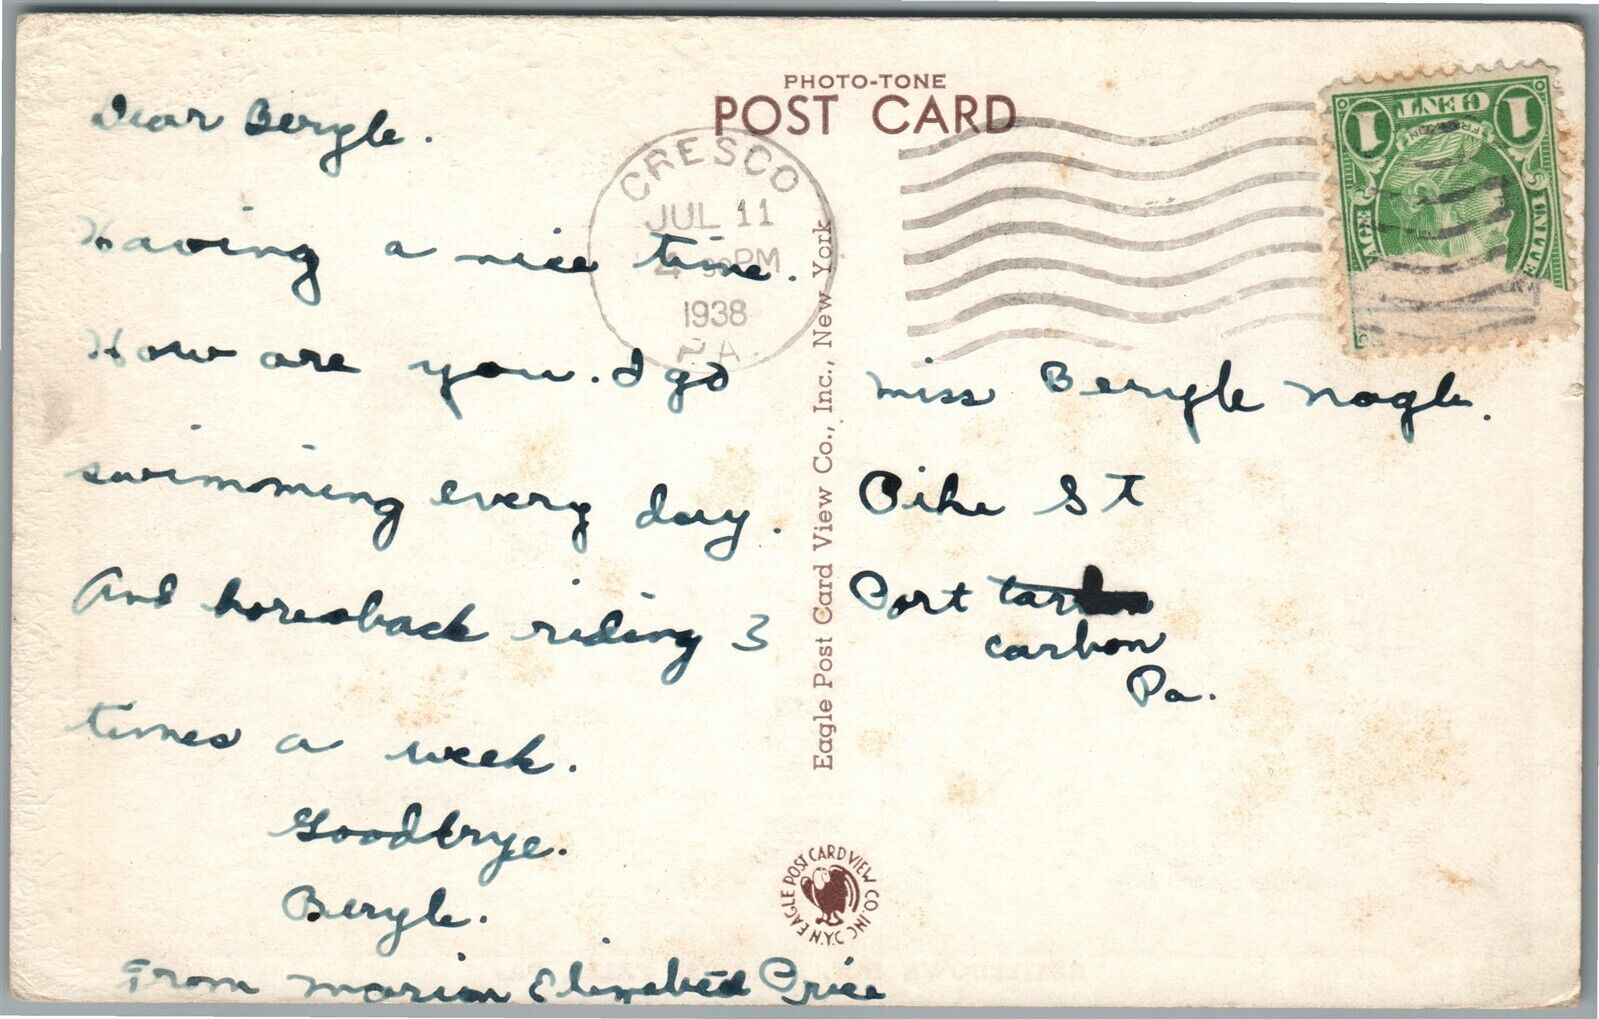 PHOTO-TONE
POST CARD
CRESCO
JUL 11
PM
1938
PA.
1 CENT 1
Dear Beryle.
Having a nice time.
How are you. I go
swimming every day.
And horesback riding 3
times a week.
Goodbye.
Beryle.
From Marion Elizabeth Price
Miss Beryle Nagle.
Pike St
Port
carbon
Pa.
Eagle Post Card View Co., Inc., New York
EAGLE POST CARD VIEW CO. INC. N.Y.C.